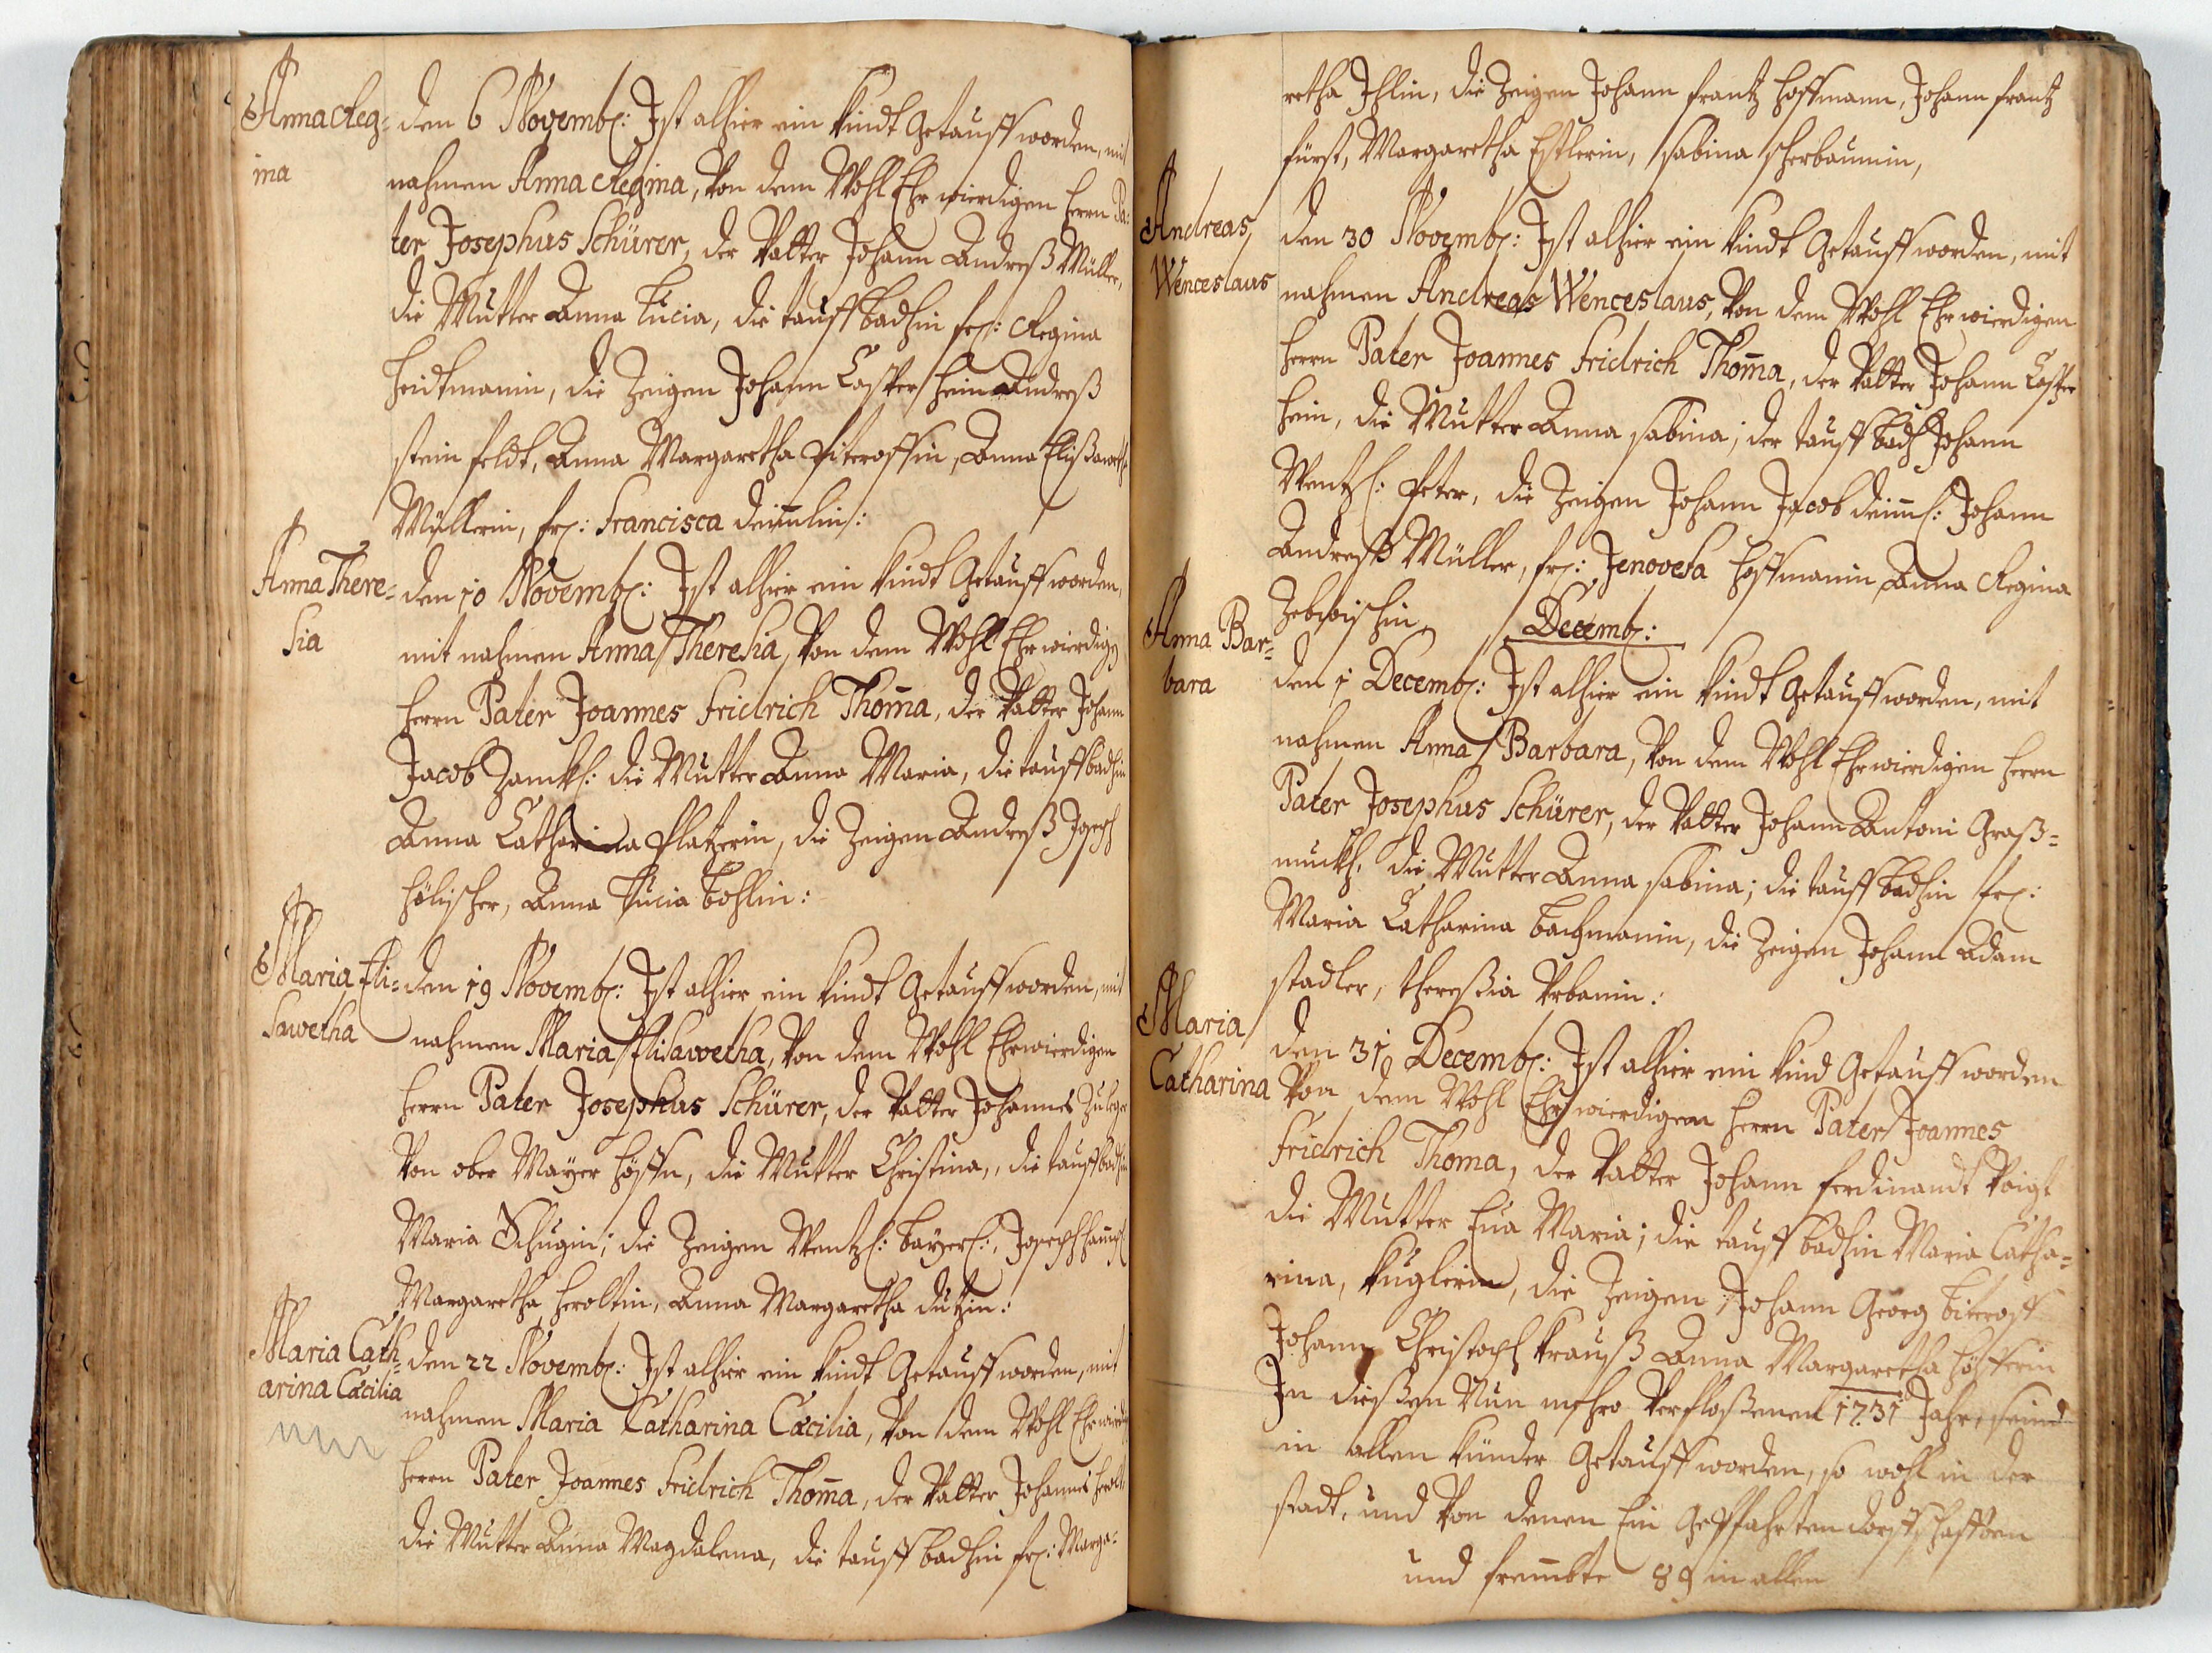 Anna Reg=
ina
den 6 Novemb: Ist alhier ein Kindt Getaufft worden, mit
nahmen Anna Regina, Von dem Wohl Ehr wierdigen Herrn Pa:
ter Josephus Schürer, der Vatter Johann Andreß Müller,
die Mutter Anna Lucia, die tauff badhin fr: Regina
Heidtmanin, die Zeigen Johann Casper Hein Andreß
stein feldt, Anna Margaretha Piterossin, Anna Elisawetha
Müllerin, fr: Francisca
Anna There=
sia
den 10 Novemb: Ist alhier ein Kindt Getaufft worden,
mit nahmen Anna Theresia, Von dem Wohl Ehr wierdigen
Herrn Pater Joannes Fridrich Thom̄a, der Vatter Johann
Jacob Zanckl: die Mutter Anna Maria, die tauff badhin
Anna Catharina Platzerin, die Zeigen Andreß Joseph
Hölischer, Anna Lucia Bohlin:
Maria Eli=
sawetha
den 19 Novemb: Ist alhier ein Kindt Getaufft worden, mit
nahmen Maria Elisawetha, Von dem Wohl Ehrwierdigen
Herrn Pater Josephus Schürer, der Vatter Johannes
Von ober Mayer Höffen, die Mutter Christina, die tauff badhin
Maria Schugin; die Zeigen Wentzl: Bayerl:, Joseph
Margaretha Heroltin, Anna Margaretha Dutzin:
Maria Cath=
arina Cæcilia
den 22 Novemb: Ist alhier ein Kindt Getaufft worden, mit
nahmen Maria Catharina Cæcilia, Von dem Wohl Ehrwierdigen
Herrn Pater Joannes Fridrich Thom̄a, der Vatter Johannes Herolt,
die Mutter Anna Magdalena, die tauff badhin fr: Marga=
retha Ihlin, die Zeigen Johann Frantz Hoffmann, Johann Frantz
fürst, Margaretha Estlerin, Sabina Scherbaumin,
Andreas
Wenceslaus
den 30 Novemb: Ist alhier ein Kindt Getaufft worden, mit
nahmen Andreas Wenceslaus, Von dem Wohl Ehrwierdigen
Herrn Pater Joannes Fridrich Thom̄a, der Vatter Johann Casper
Hein, die Mutter Anna Sabina; der tauff badh Johann
Wentzl: Peter, die Zeigen Johann Jacob Johann
Andreß Müller, fr: Jenovefa Hoffmanin, Anna Regina
Zebischin,
Decemb:
Anna Bar=
bara
den 1 Decemb: Ist alhier ein Kindt Getaufft worden, mit
nahmen Anna Barbara, Von dem Wohl Ehrwierdigen Herrn
Pater Josephus Schürer, der Vatter Johann Antoni Graß=
muckh, die Mutter Anna Sabina; die tauff badhin fr:
Maria Catharina Bachmanin, die Zeigen Johann Adam
Stadler, Theresia Urbanin:
Maria
Catharina
den 31 Decemb: Ist alhier ein Kind Getaufft worden
Von dem Wohl Ehr wierdigen Herrn Pater Joannes
Fridrich Thoma, der Vatter Johann Ferdinandt Voigt
die Mutter Eua Maria; die tauff badhin Maria Catha=
rina, Kuglerin, die Zeigen Johann Georg Biteroff
Johann Christoph Krauß Anna Margaretha Höfferin
In dießen Nun mehro Verfloßenen 1731 Jahr, seind
in allen Künder Getaufft worden, so wohl in der
Stadt, und Von denen Ein Gepfahrten dorffschafften
und frem̄bte 89 in allen